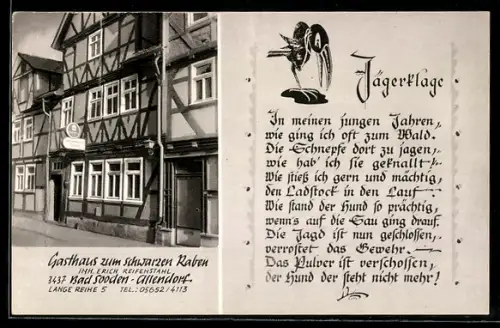 Gasthaus zum schwarzen Raben
INH. ERICH REIFENSTAHL
3437 Bad Sooden-Allendorf
LANGE REIHE 5 TEL.: 05652/4113
Jägerklage
In meinen jungen Jahren,
wie ging ich oft zum Wald.
Die Schnepfe dort zu jagen,
wie hab' ich sie geknallt.
Wie stieß ich gern und mächtig,
den Ladstock in den Lauf
Wie stand der Hund so prächtig,
wenn's auf die Sau ging drauf.
Die Jagd ist nun geschlossen,
verrostet das Gewehr.
Das Pulver ist verschossen,
der Hund der steht nicht mehr!